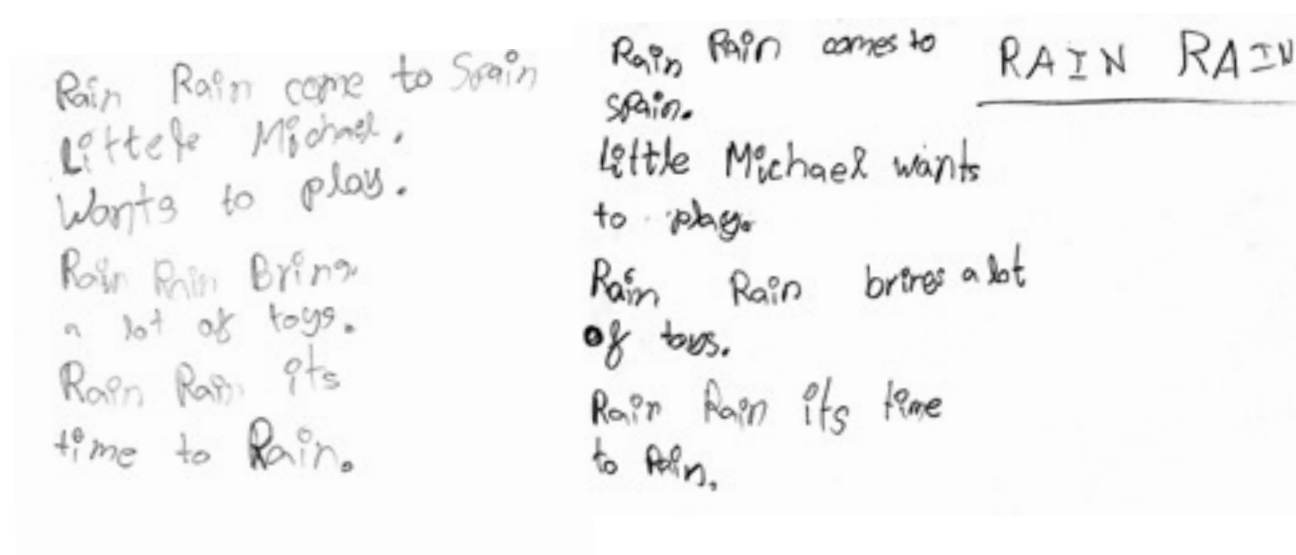 Rain Rain come to Spain
Littele Michael.
Wants to play.
Rain Rain Bring
a lot of toys.
Rain Rain its
time to Rain.
RAIN RAIN
Rain Rain comes to
spain.
Little Michael wants
to play.
Rain Rain brings a lot
of toys.
Rain Rain its time
to Rain.